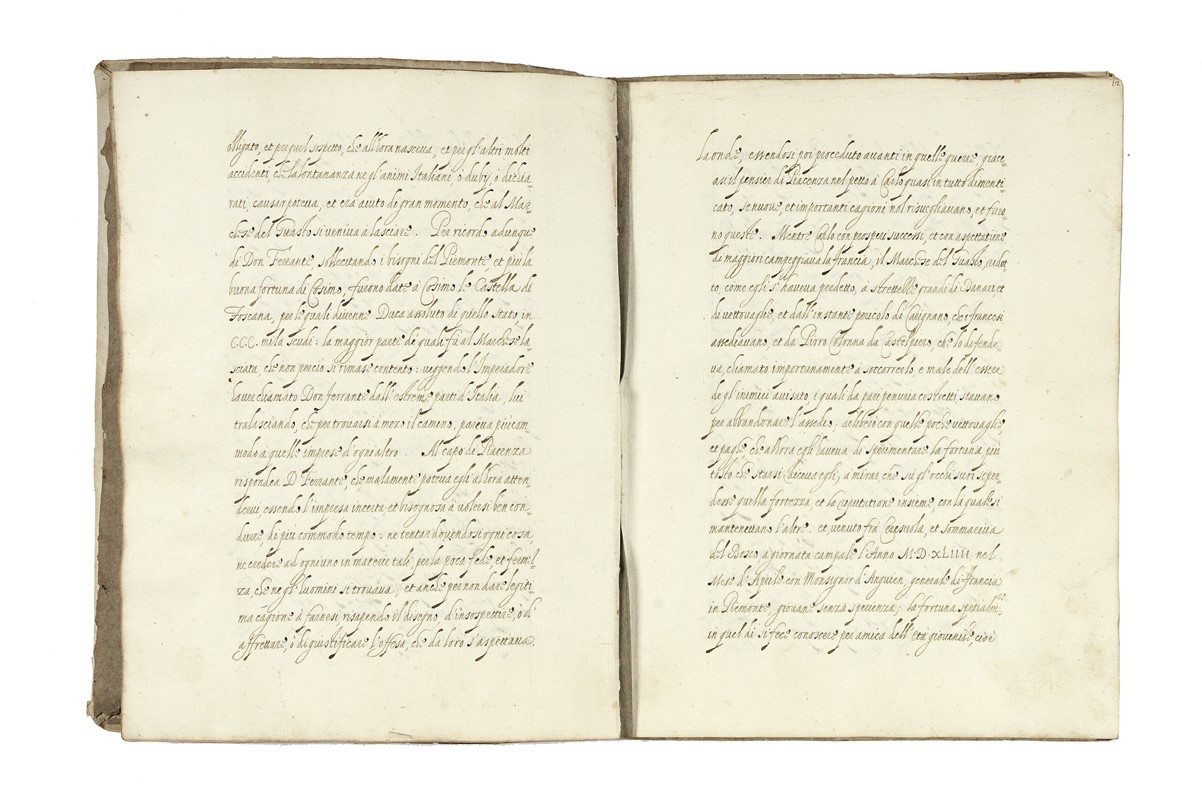 bligato, et per quel sospetto, che all'hora nasceva, et per gl'altri molti
accidenti, che la lontananza ne gl'animi Italiani, ò dubij, ò dichia-
rati, causar poteva, et era aiuto de gran momento, che al Mar-
chese del Guasto si veniva à lasciare. Per ricordo adunque
di Don Ferrante, sollecitando i bisogni del Piemonte, et più la
buona fortuna di Cosimo, furono date à Cosimo le Castella di
Toscana, per le quali divenne Duca assoluto di quello stato in
CCC. mila scudi: la maggior parte de quali fù al Marchese la-
sciata, che non perciò si rimase contento: veggendo l'Imperadore
haver chiamato Don ferrante dall'estreme parti d'Italia, lui
tralasciando, che per trovarsi à mezo il camino, pareva più com-
modo a quelle imprese d'ogni altro. Al capo di Piacenza
rispondea D. Ferrante, che malamente poteva egli all'hora atten
dervi, essendo l'impresa incerta, et bisognosa à volersi ben con
durre, di più commodo tempo: ne tentar dovendosi ogni cosa,
ne credere ad ognuno in materie tali, per la poca fede, et fermez-
za, che ne gl'huomini si trovava, et anche per non dare legiti
ma cagione à farnesi risapendo il disegno, d'insospettire, ò di
affrettare, ò di giustificare l'offesa, che da loro s'aspettava.
La onde, essendosi poi proceduto avanti in quelle guerre, giace-
asi il pensier di Piacenza nel petto à Carlo quasi in tutto dimenti-
cato, se nuove, et importanti cagioni nol risvegliavano, et furo-
no queste. Mentre Carlo con prosperi successi, et con aspettatione
di maggiori campeggiava la francia, il Marchese del Guasto, ridot-
to, come egli s'haveva predetto, a strettezze grandi di Danari, et
di vettovaglie, et dall'instante pericolo di Carignano, che i francesi
assediavano, et da Pirro Colonna da Castel piero, che lo difende-
va, chiamato importunamente à soccorrerlo, e male dell'essere
de gl'inimici avisato, i quali da pari penuria costretti stavano
per abbandonare l'assedio: deliberò con quelle poche vettovaglie
et paghe, che allora egli haveva, di sperimentar la fortuna, più
tosto che starsi à mirar, che sù gl'occhi suoi si per-
desse quella fortezza, et la riputatione insieme, con la quale si
mantenevano l'altre: et, venuto frà Ceresuola, et Sommariva
del Bosco à giornata campale l'Anno M.D.XLIIII nel
Mese d'Aprile con Monsignor d'Anguien, generale di francia
in Piemonte, giovane senza sperienza; la fortuna spetialmte
in quel dì si fece conoscere per amica dell'età giovenile, cioè